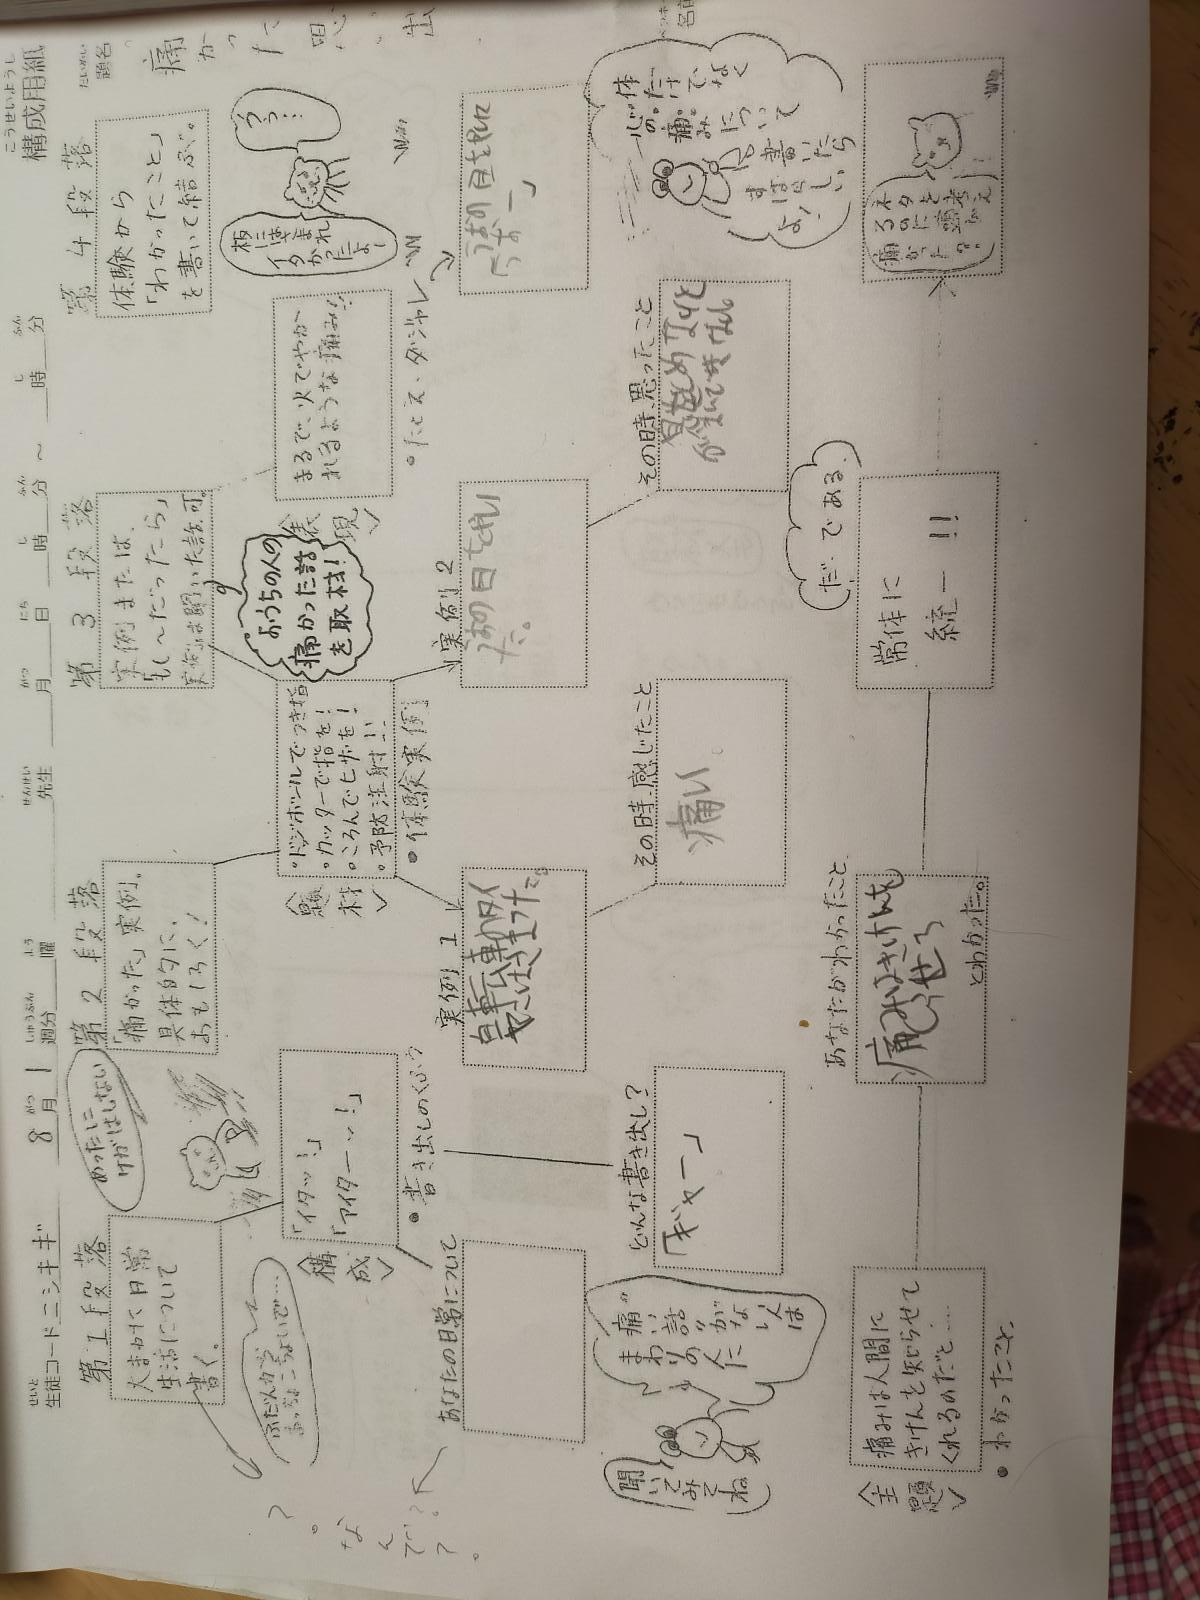 構成用組
こうせいようし
生徒コード ニシキギ 8月 1週分 曜 先生 月 日 時 分 ~ 時 分
題名
痛かった思い出
第1段落
大まかに日常
生活について
書く。
ふだんから
なんで?
めったに
けがはしない
第2段落
「痛かった」実例。
具体的に、
おもしろく!
第3段落
実例または、
「もし~だったら」
実例は聞いた話可。
第4段落
体験から
「わかったこと」
を書いて結ぶ。
〈構成〉
「イタッ!」
「アイターッ!」
●書き出しのくふう
〈題材〉
・ドジボールでつき指
・カッターで指を!
・ころんでヒザを!
・予防注射!!
●体験実例
おうちの人の
痛かった話
を取材!
〈表現〉
まるで、火でやか
れるような痛み!!
●たとえ・ダジャレ
うう…
板にはさまれ
イタかったよ!
あなたの日常について
実例1
自転車
実例2
母の日
だ。
どんな書き出し?
「ギャー」
その時、感じたこと
痛い。
その時、思ったこと
聞いてみてね
“痛い話”がない人は
まわりの人に
体だけでなく
心の痛みについて
を書いたら
すばらしい
よ!
〈主題〉
痛みは人間に
きけんを知らせて
くれるのだと…
●わかったこと
あなたがわかったこと
とわかった。
常体に
統一!!
だ・である
ネタを考え
るのに頭が
痛かった?